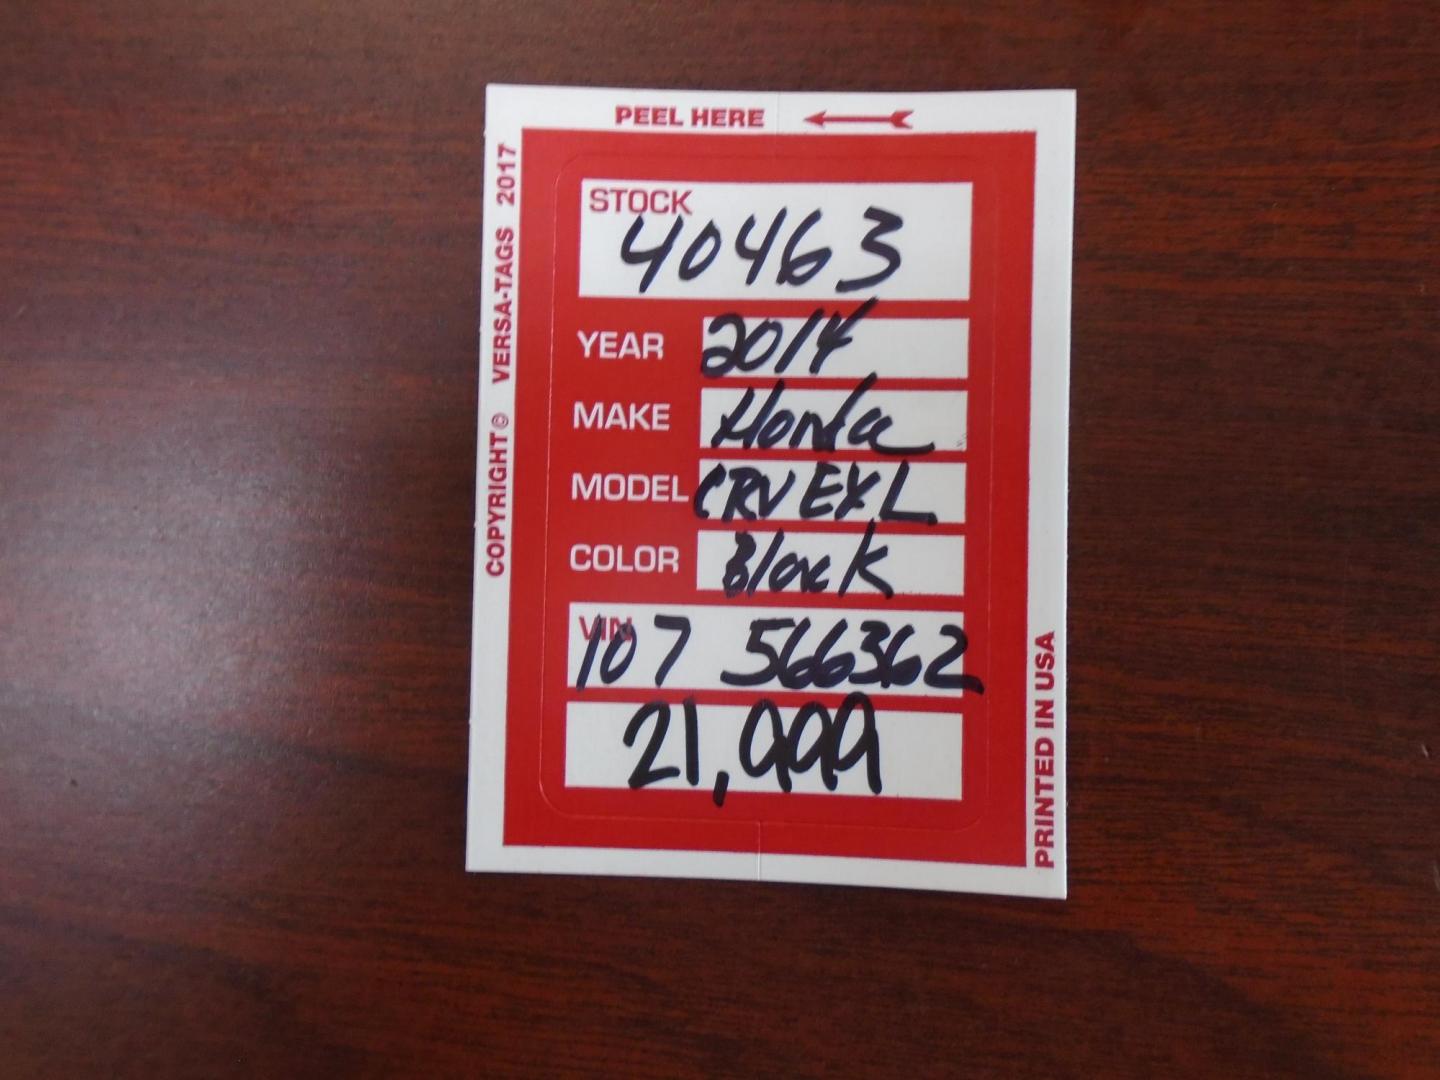 PEEL HERE
COPYRIGHT© VERSA-TAGS 2017
STOCK
40463
YEAR 2014
MAKE Honda
MODEL CRV EXL
COLOR Black
VIN
107 566362
21,999
PRINTED IN USA